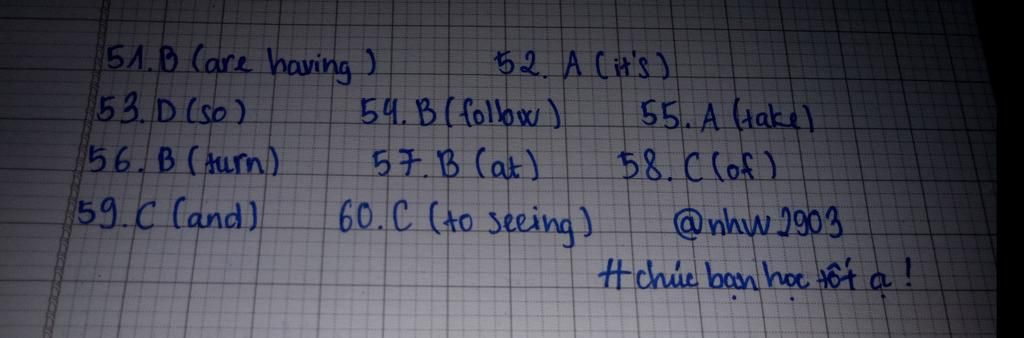 51. B (are having) 52. A (it's)
53. D (so) 54. B (follow) 55. A (take)
56. B (turn) 57. B (at) 58. C (of)
59. C (and) 60. C (to seeing) @nhw2903
# chúc bạn học tốt ạ!